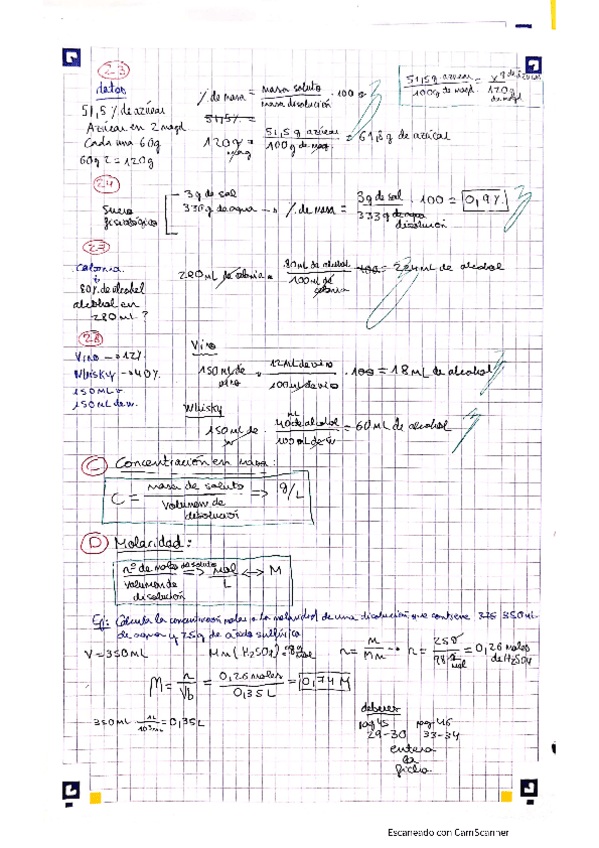 23
datos
51,5% de azúcar
Azúcar en 2 magd.
Cada una 60g
60g 2 = 120g
% de masa = masa soluto / masa disolución · 100
51,5%
120g = 51,5g azúcar / 100g de magd. = 61,8g de azúcar
51,5g azúcar / 100g de magd. = x g de azúcar / 120g de magd
24
Suero fisiológico
3g de sal
330g de agua → % de masa = 3g de sal / 333g de agua disolución · 100 = 0,9%
27
Colonia
80% de alcohol
alcohol en
280 mL?
280mL de colonia = 80mL de alcohol / 100mL de colonia 100 = 224mL de alcohol
28
Vino → 12%
Whisky → 40%
150mL
150mL de w.
Vino
150mL de vino · 12mL de vino / 100mL de vino · 100 = 18mL de alcohol
Whisky
150mL de w · 40 mL de alcohol / 100mL de w = 60mL de alcohol
C Concentración en masa:
C = masa de soluto / volumen de disolución => g/L
D Molaridad:
nº de moles de soluto / volumen de disolución => mol / L <-> M
Ej: Calcula la concentración molar o la molaridad de una disolución que contiene 350mL
de agua y 25g de ácido sulfúrico
V = 350mL
Mm (H2SO4) = 98 g/mol
n = m / Mm → n = 25g / 98 g/mol = 0,26 moles de H2SO4
M = n / Vb = 0,26 moles / 0,35L = 0,74M
350mL 1L / 10³mL = 0,35L
deberes
pag 45 pag 46
29-30 33-34
entera
la
ficha
Escaneado con CamScanner